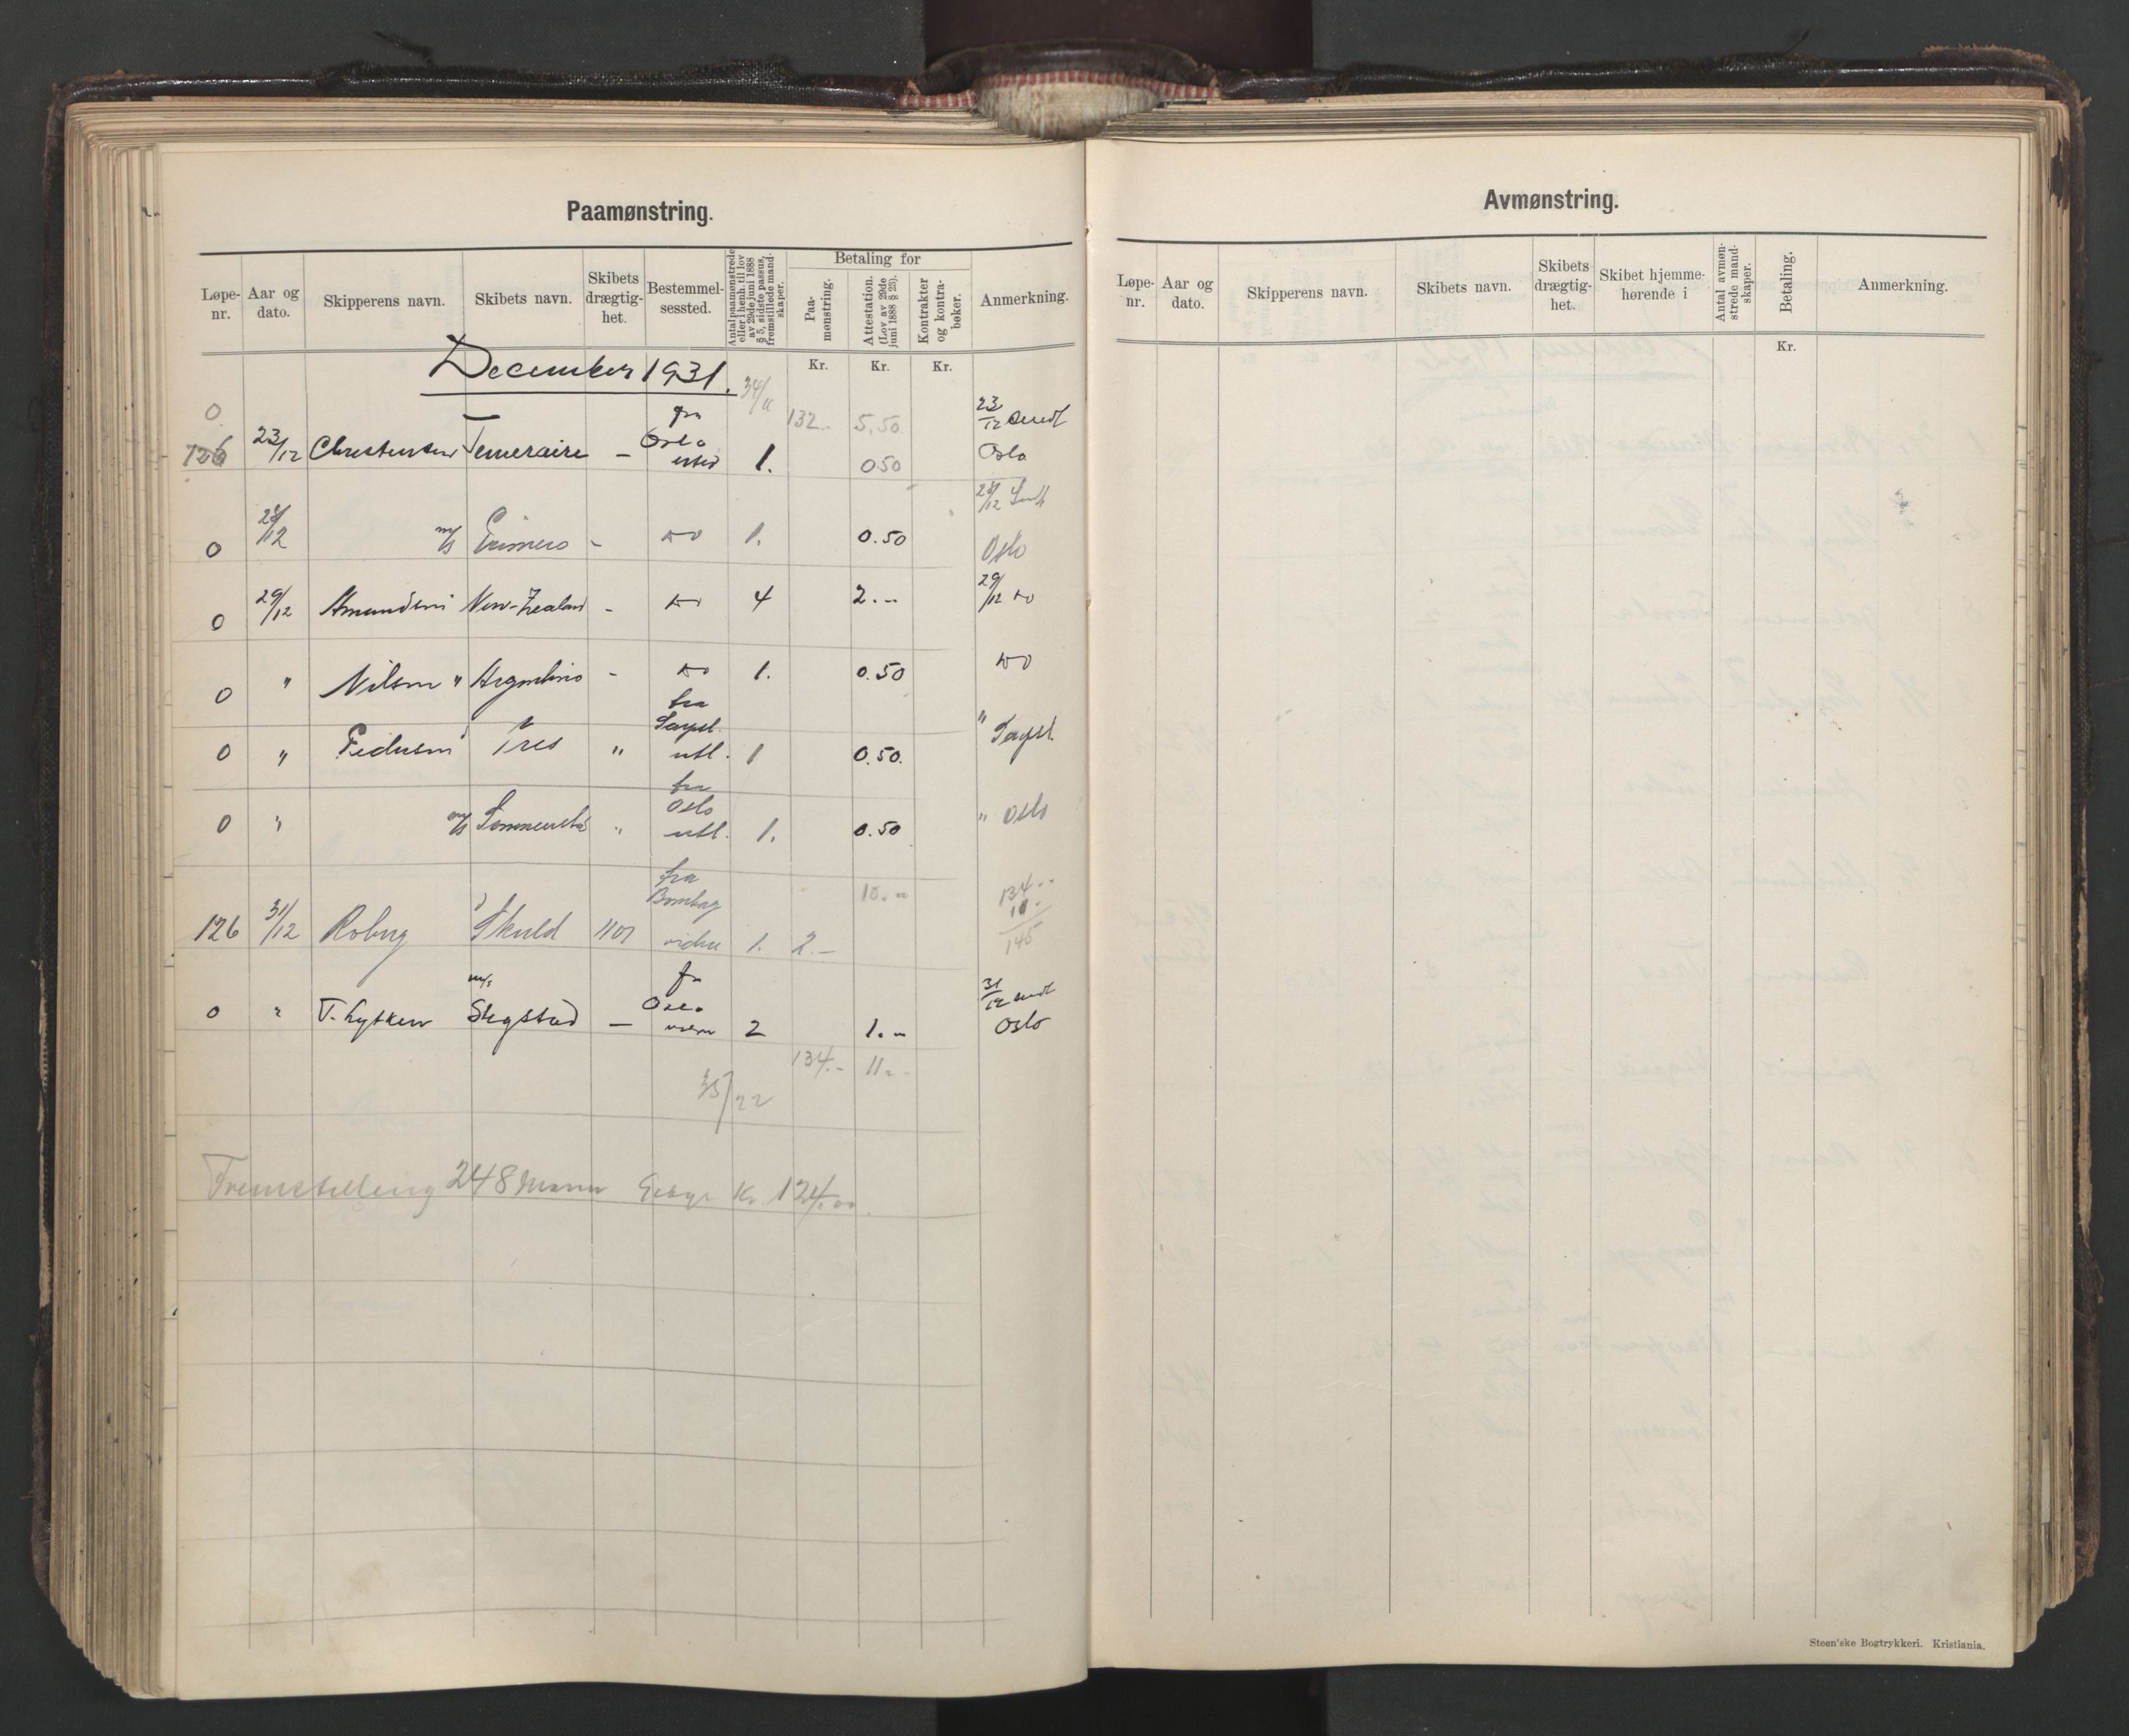 Paamønstring.
Løpe-nr.
Aar og dato.
Skipperens navn.
Skibets navn.
Skibets drægtig-het.
Bestemmel-sessted.
Antal paamønstrede eller i henh. til lov av 29de juni 1888 § 5, sidste passus, fremstillede mand-skaper.
Betaling for
Paa-mønstring.
Attestation. (Lov av 29de juni 1888 § 23).
Kontrakter og kontra-bøker.
Anmerkning.
Kr. Kr. Kr.
December 1931.
34/11 132.- 5.50
0 126 23/12 Christensen Temeraire - fra Oslo 1. 0.50 23/12 sendt Oslo
0 28/12 m/s - do 1. 0.50 28/12 Sendt Oslo
0 29/12 Amundsen New-Zealand - do 4 2.-- 29/12 do
0 " Nilsen " Argentina - do 1. 0.50 do
0 " Pedersen Tres " fra Sarpsb. utl. 1 0.50. " Sarpsb.
0 " m/s Sommerstad " fra Oslo utl. 1. 0.50 " Oslo
10.-- 134.-- 11.- 145
126 31/12 Roberg Skuld 1101 fra Bombay videre 1. 2.-
0 " T. Lykken m/s Skegstad - fra Oslo 2 1.-- 31/12 sendt Oslo
134.- 11.-
35/22
Fremstilling 248 Mann Gebyr Kr. 124.00.
Avmønstring.
Løpe-nr.
Aar og dato.
Skipperens navn.
Skibets navn.
Skibets drægtig-het.
Skibet hjemme-hørende i
Antal avmøn-strede mand-skaper.
Betaling.
Anmerkning.
Kr.
Steen'ske Bogtrykkeri. Kristiania.